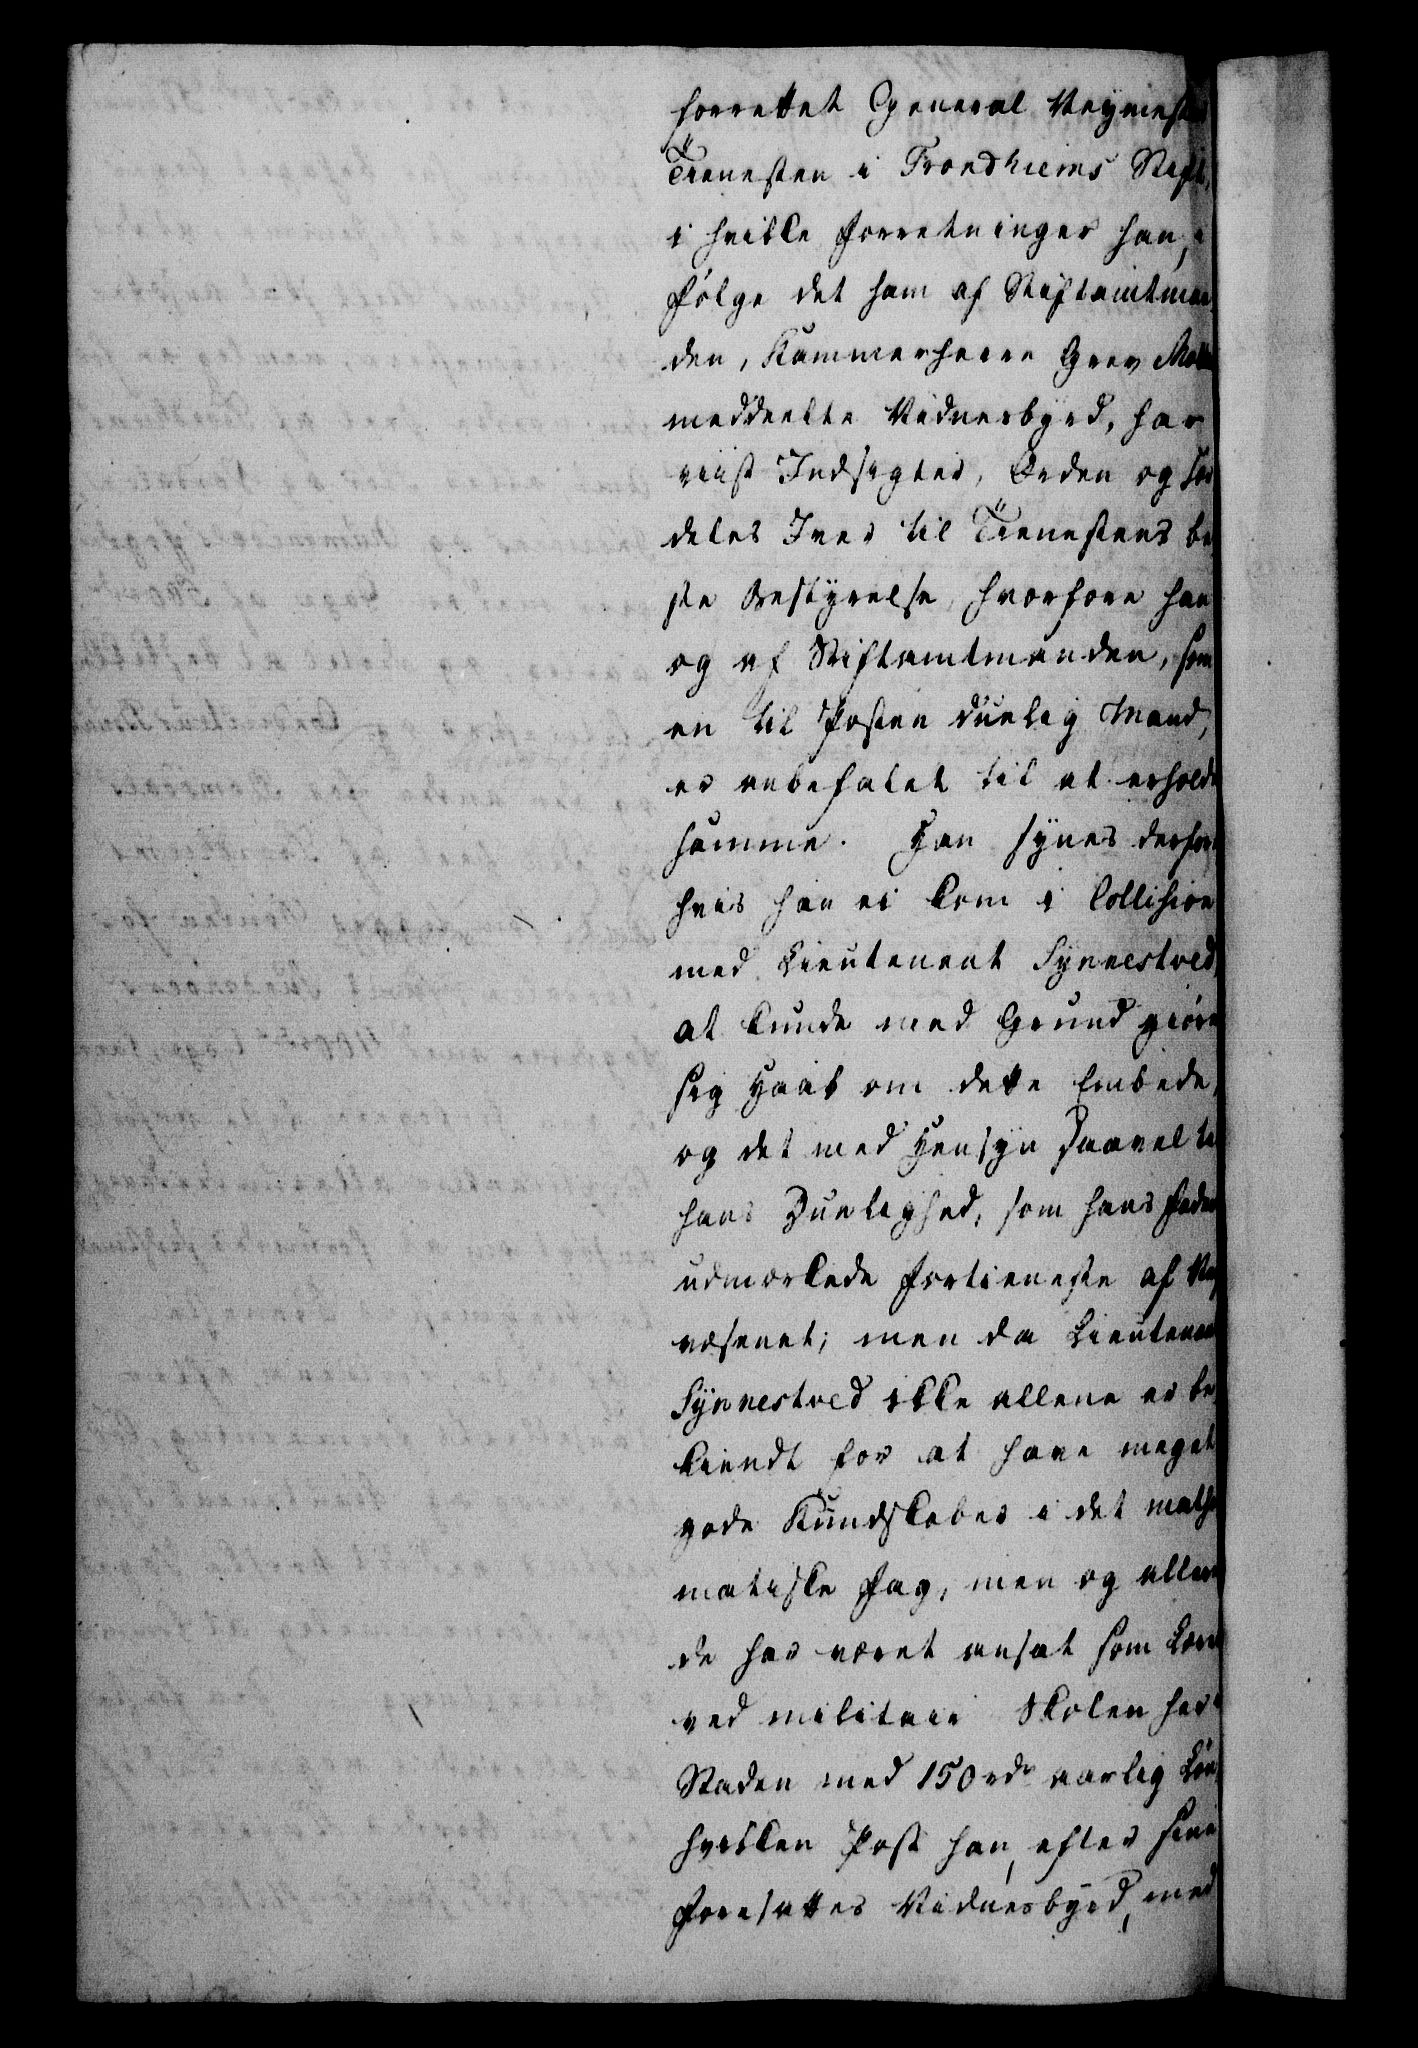 forrettet General Veymester
Tienesten i Trondhiems Stift,
i hvilke Forretninger han, i
følge det ham af Stiftamtman
den, Kammerherre Grev Molt
meddeelte Vidnesbyrd, har
viist Indsigter, Orden og sær
deles Iver til Tienestens be
ste Bestyrelse, hvorfore han
og af Stiftamtmanden, som
en til Posten duelig Mand,
er anbefalet til at erholde
samme. Han synes derfor
hvis han ei kom i Collision
med Lieutenant Synnestved,
at kunde med Grund giøre
sig Haab om dette Embede,
og det med Hensyn saavel til
hans Duelighed, som hans Faders
udmærkede Fortieneste af Vej
væsenet; men da Lieutenant
Synnestved ikke allene er be
kiendt for at have meget
gode Kundskaber i det mathe
matiske Fag, men og allere
de har været ansat som Lærer
ved militair Skolen her i
Staden med 150 rdr aarlig Løn,
hvilken Post han, efter sine
Foresattes Vidnesbyrd, med